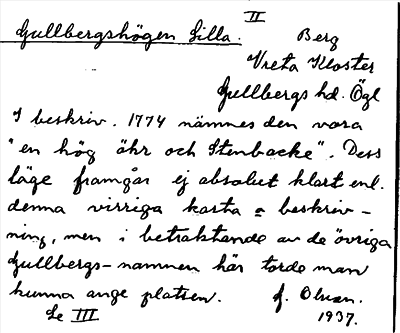 II
Gullbergshögen Lilla.
Berg
Vreta Kloster
Gullbergs hd. Ögl
I beskriv. 1774 nämnes den vara
"en hög åhr och Stenbacke". Dess
läge framgår ej absolut klart enl.
denna virriga karta o beskriv-
ning, men i betraktande av de övriga
Gullbergs-namnen här torde man
kunna ange platsen. J. Olsson.
Se III 1937.